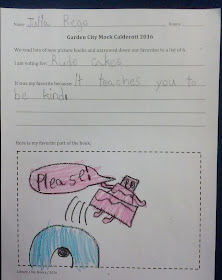 Name Julia Rego
Garden City Mock Caldecott 2016
We read lots of new picture books and narrowed down our favorites to a list of 6
I am voting for: Rude Cakes
It was my favorite because It teaches you to
be kind.
Here is my favorite part of the book:
Please!